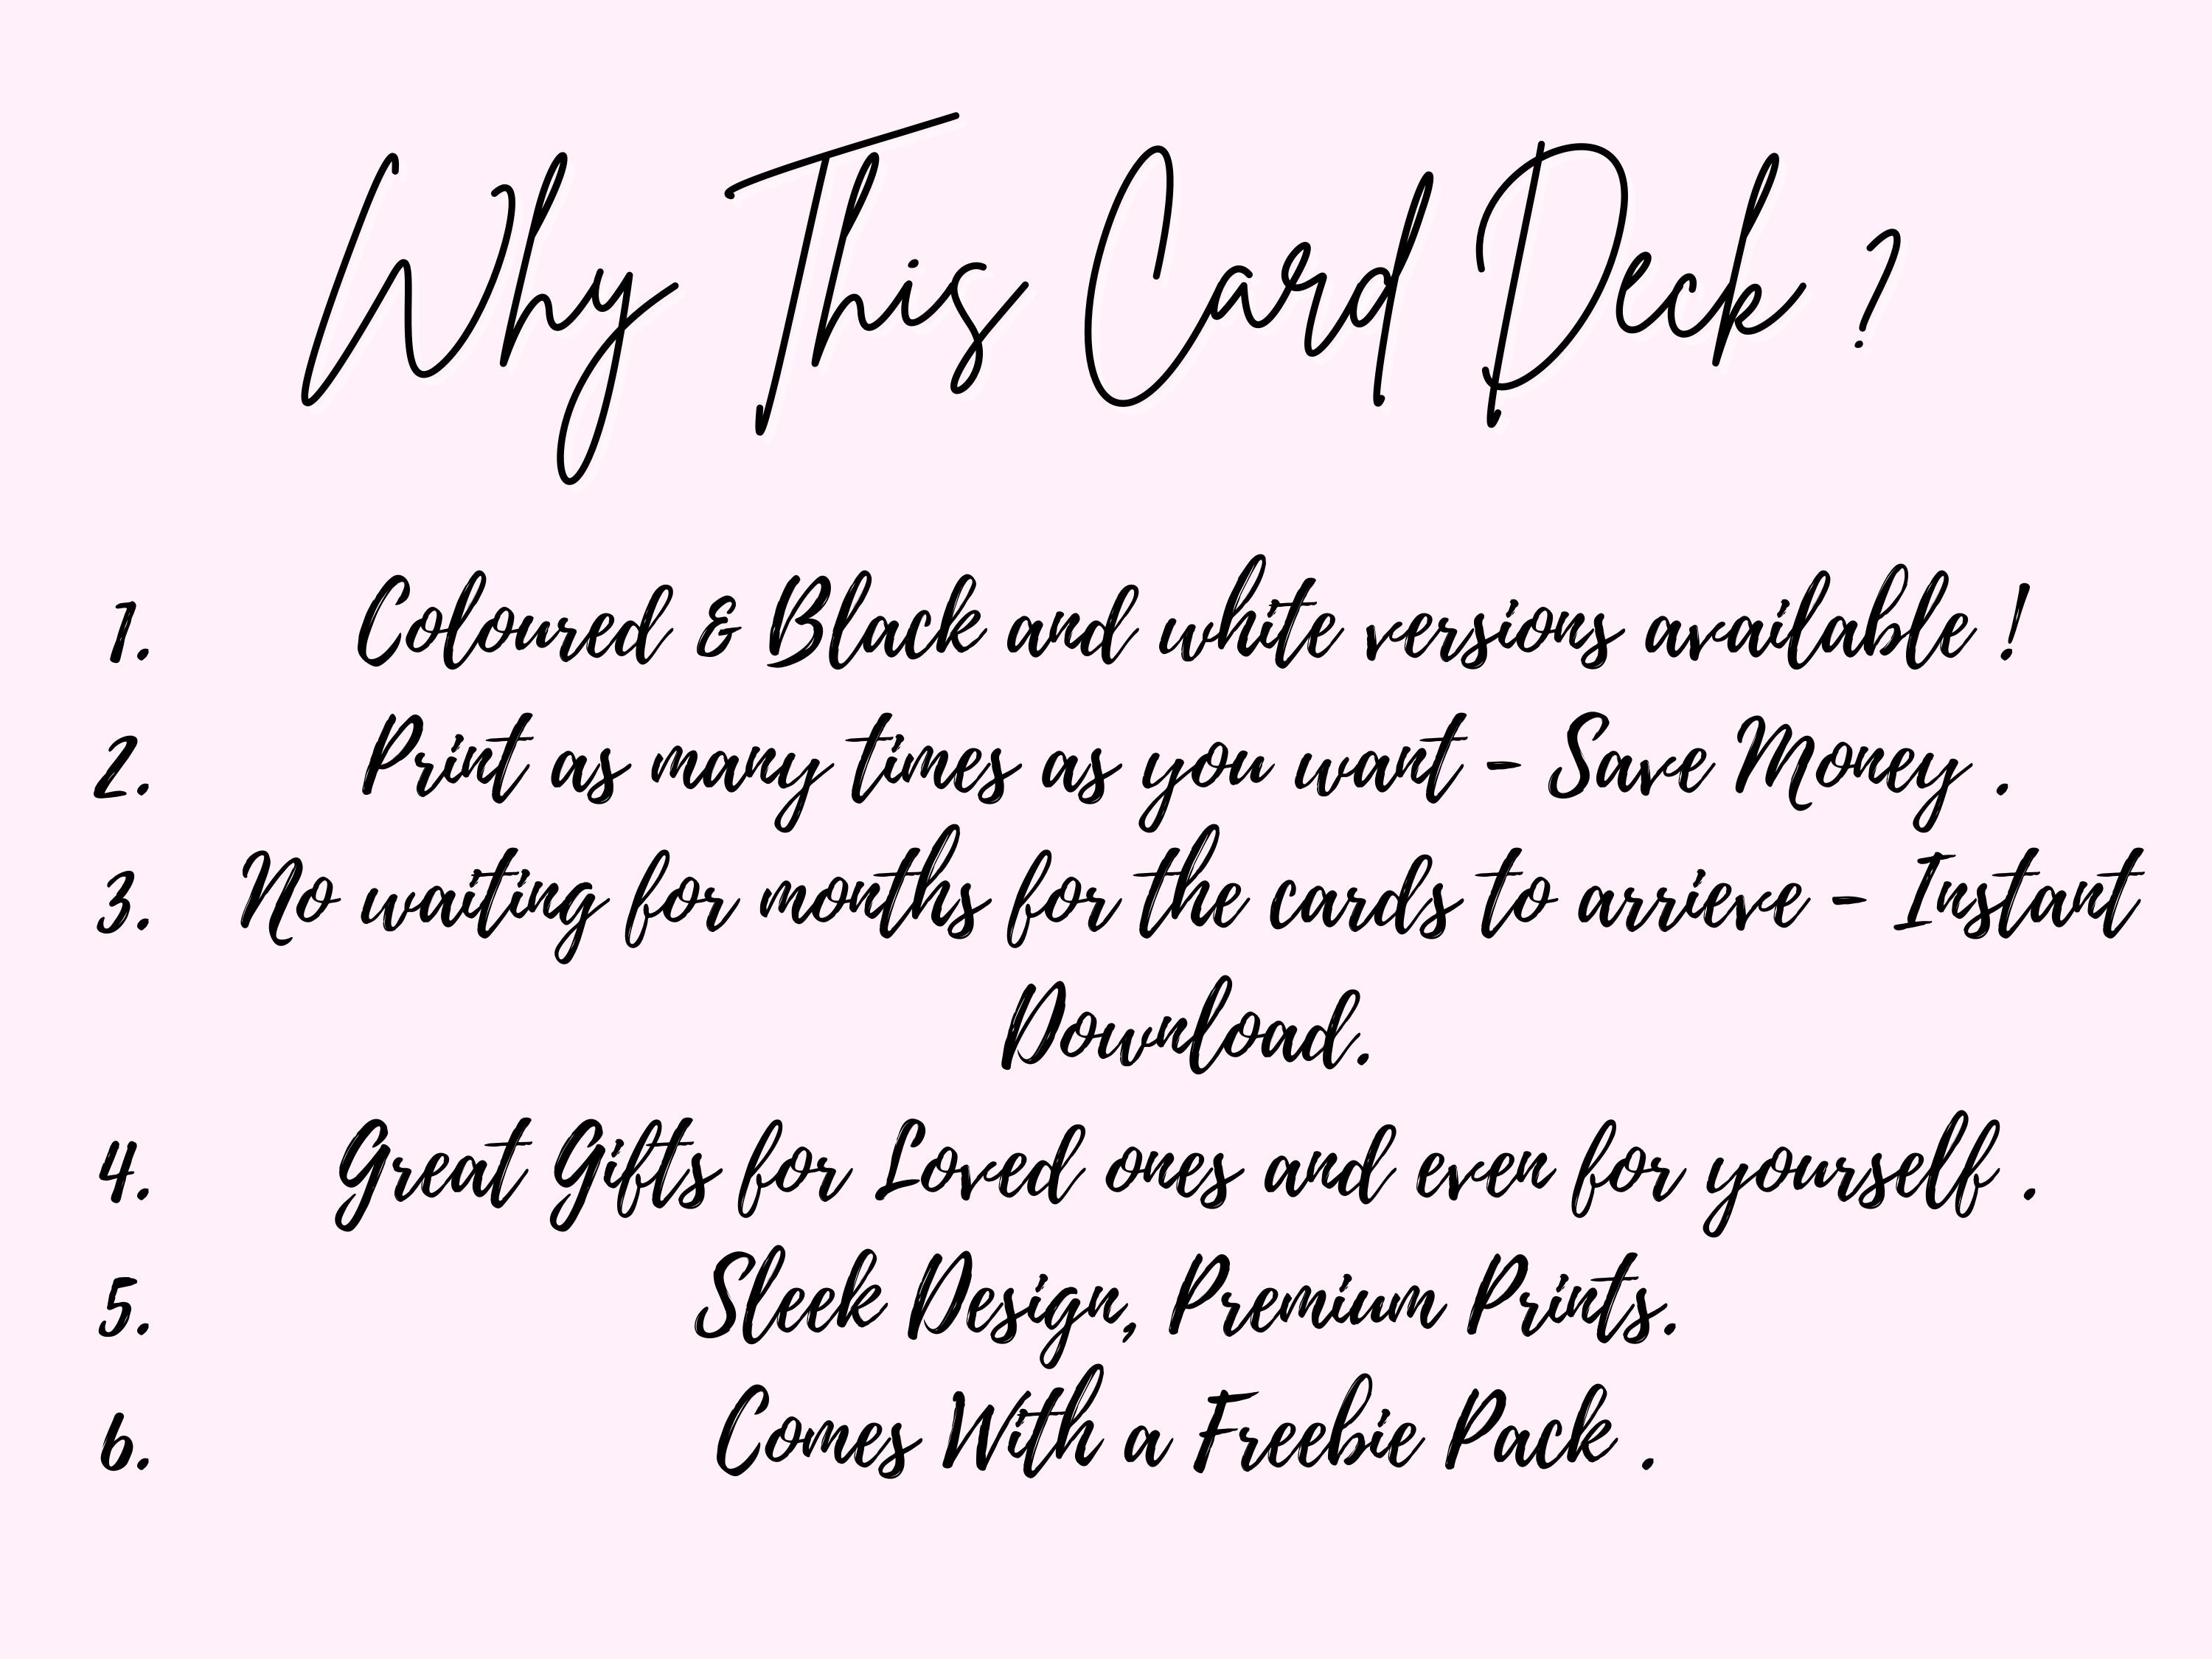 Why This Card Deck ?
1. Coloured & Black and white versions available !
2. Print as many times as you want - Save Money .
3. No waiting for months for the cards to arrieve - Instant
Download.
4. Great Gifts for Loved ones and even for yourself .
5. Sleek Design, Premium Prints.
6. Comes With a Freebie Pack .